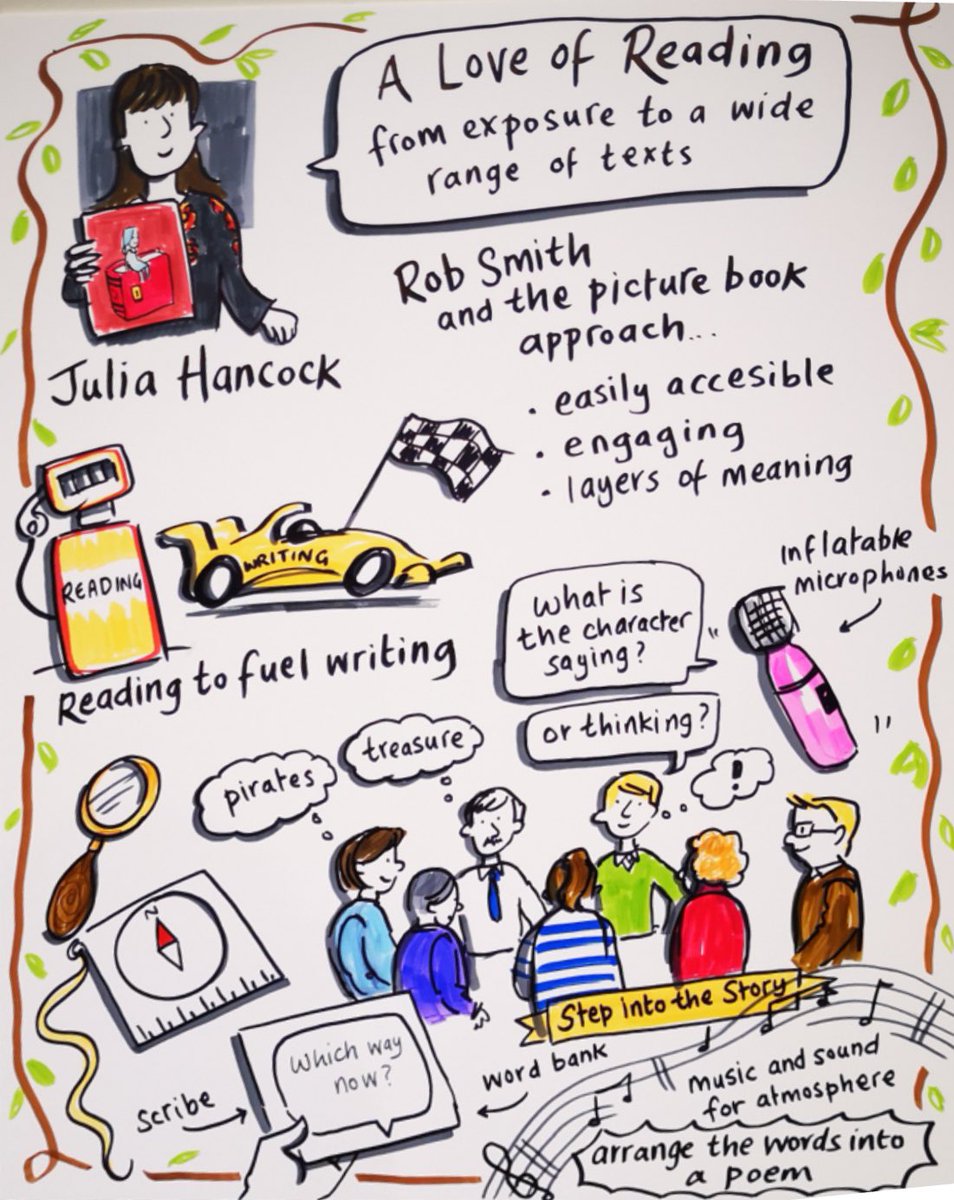 A Love of Reading
from exposure to a wide
range of texts
Julia Hancock
Rob Smith
and the picture book
approach...
• easily accesible
• engaging
• layers of meaning
READING
WRITING
Reading to fuel writing
Inflatable
microphones
What is
the character
saying?
or thinking?
pirates
treasure
!
N
Step into the Story
Which way
now?
scribe
word bank
music and sound
for atmosphere
arrange the words into
a poem